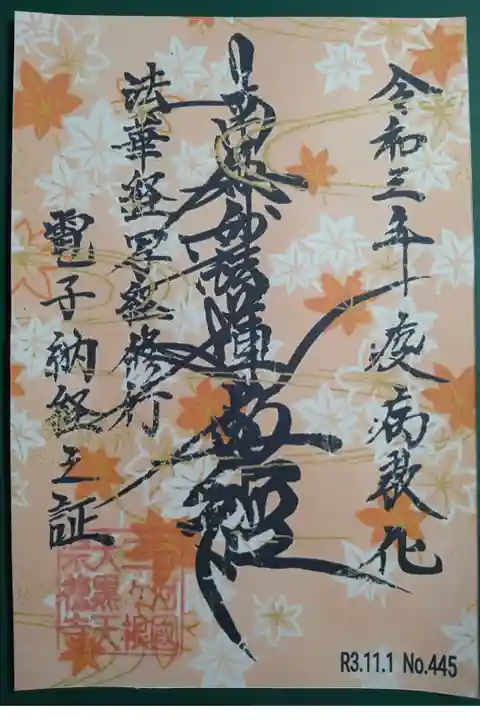 令和三年 疫病救化
南無妙法蓮華経
法華経写経修行
電子納経之証
R3.11.1 No.445